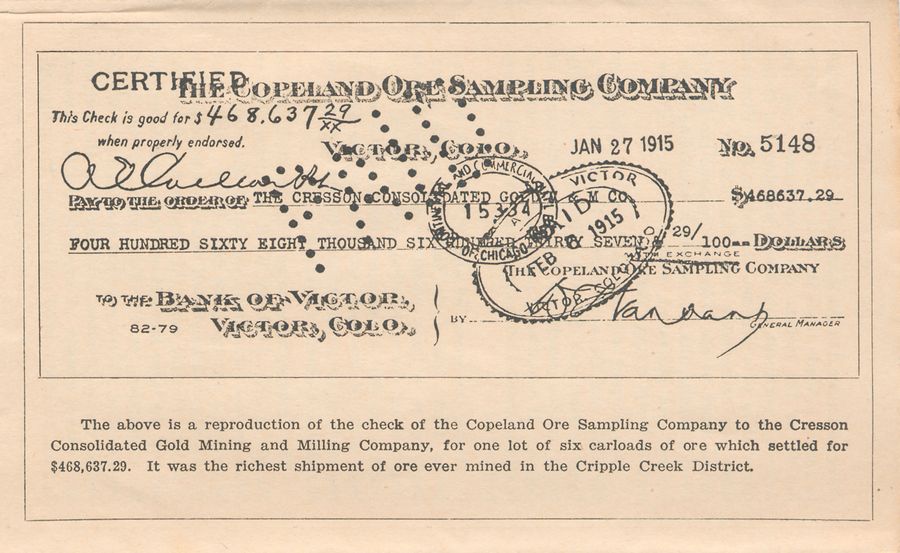 CERTIFIED
THE COPELAND ORE SAMPLING COMPANY
This Check is good for $468,637 29/xx
when properly endorsed.
VICTOR, COLO., JAN 27 1915 No. 5148
PAY TO THE ORDER OF THE CRESSON CONSOLIDATED GOLD M & M CO. $468637.29
FOUR HUNDRED SIXTY EIGHT THOUSAND SIX HUNDRED THIRTY SEVEN & 29/100-- DOLLARS
WITH EXCHANGE
THE COPELAND ORE SAMPLING COMPANY
TO THE BANK OF VICTOR,
82-79 VICTOR, COLO.
BY
GENERAL MANAGER
AND COMMERCIAL
15334
OF CHICAGO
VICTOR
PAID
FEB 2 1915
VICTOR COLO
The above is a reproduction of the check of the Copeland Ore Sampling Company to the Cresson
Consolidated Gold Mining and Milling Company, for one lot of six carloads of ore which settled for
$468,637.29. It was the richest shipment of ore ever mined in the Cripple Creek District.